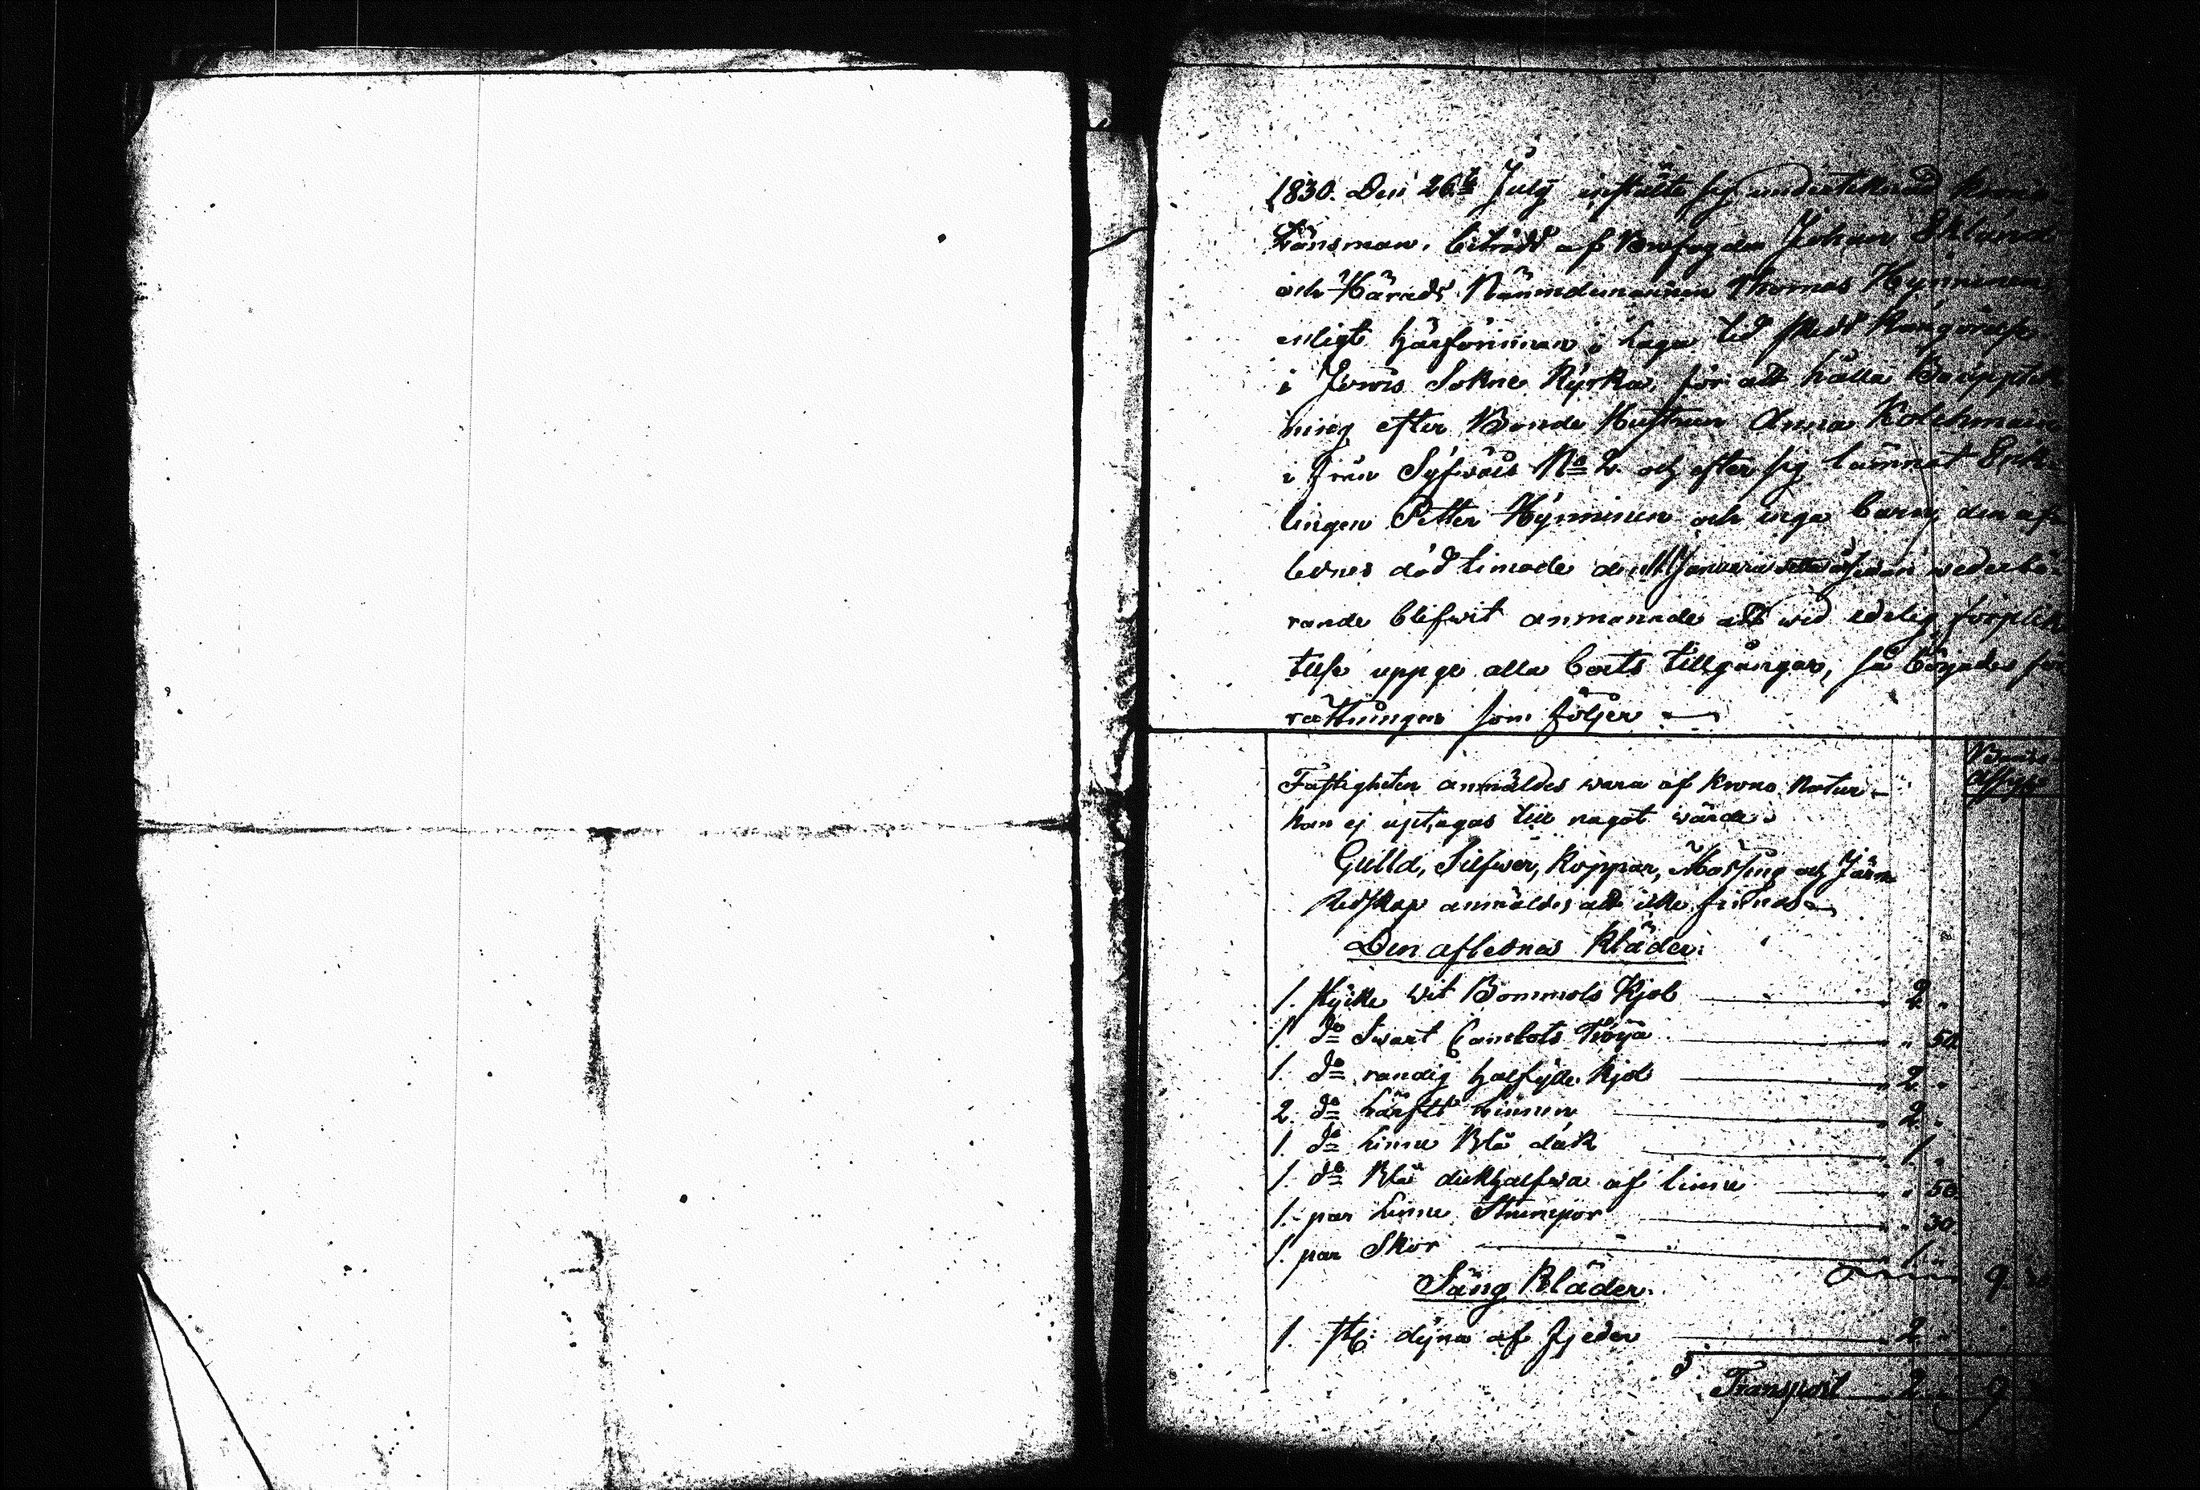 1830. Den 26te July instälte sig undertecknad Krono
Länsman, biträdd af Brofogden Johan Eklund
och Härads Nämndemannen Thomas Hynninen
enligt härförinnan i laga tid skedd Kungörelse
i Jorois Sokne Kyrka, för att hålla Bouppteck
ning efter Bonde Hustrun Anna Kolehmain
ifrån Syfwäis No 2. och efter sig lämnat Enk-
lingen Petter Hynninen och inga barn, den af-
lednes död timade den Januarii sedan wederbö-
rande blifwit anmanade att wid edelig förplik
telse uppge alla boets tillgångar, så börjades för
rättningen som följer
Fastigheten anmäldes wara af Krono Natur
kan ej uptagas till något wärde.
Gulld, Silfwer, Koppar, Mässing och Järn
Redskap anmäldes att icke finnas
Den aflednes Kläder.
1. stycke wit Bommols Kjol 2 "
1 do Swart Camlots Tröja " 50
1. do randig halfylle Kjol 2 "
2. do Linnen 2 "
1. do Linne Blå duk 1 "
1. do Blå dukhalfwa af linne " 50
1. par Linne Strumpor " 30
1. par Skor 1 9
Säng Kläder.
1. st: dyna af fjeder 2 "
Transport 2 " 9